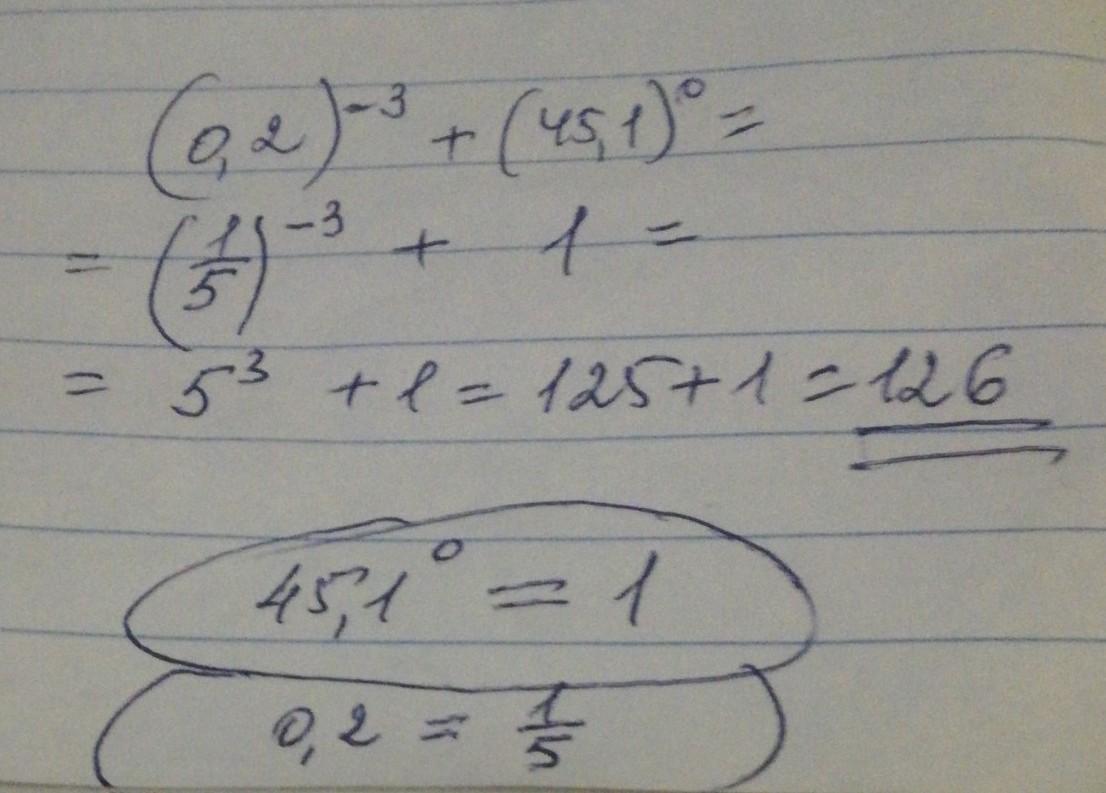 (0,2)⁻³ + (45,1)⁰ =
= (1/5)⁻³ + 1 =
= 5³ + 1 = 125 + 1 = 126
45,1⁰ = 1
0,2 = 1/5